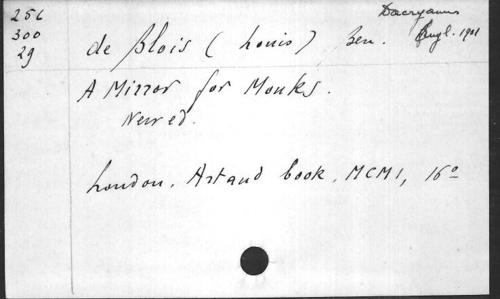 256
300
29
Dacryanus
Engl. 1901
de Blois (Louis) Ben.
A Mirror for Monks.
New ed.
London, Art and book, MCMI, 16º